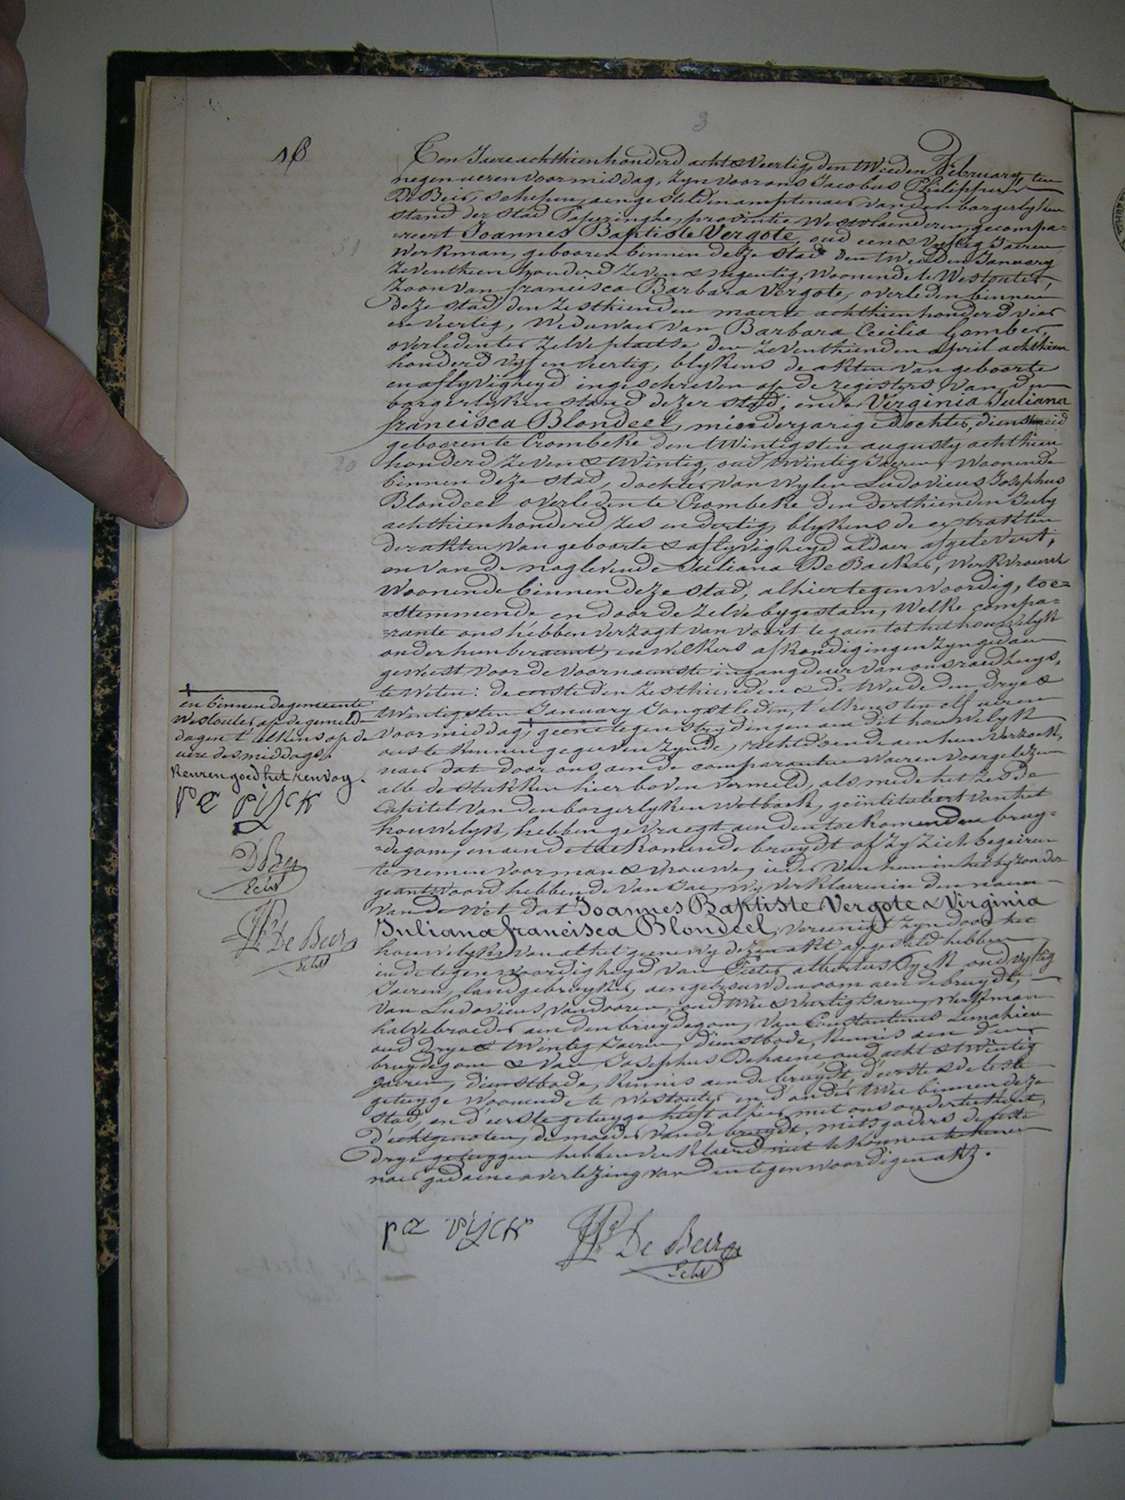 3
16
Een Jaere achthienhonderd acht & veertig den tweeden February, ten
negen ueren voormiddag, zyn voor ons Jacobus Philippus
De Beir, schepen, aengestelden amptenaer van den borgerlyken
stand der stad Poperinghe, provintie Westvlaenderen, gecompa-
reert Joannes Baptiste Vergote, oud een & vyftig Jaeren
Werkman, geboren binnen deze stad den tweeden January
zeventhien honderd zeven & negentig, woonende te Westouter,
zoon van francisca Barbara Vergote, overleden binnen
deze stad den zesthienden maerte achthienhonderd vier
en veertig, Weduwaer van Barbara Cecilia Gombert,
overleden ter zelve plaetse den zeventhienden april achthien
honderd vyf en veertig, blykens de akten van geboorte
en aflyvigheyd ingeschreven op de registers van den
borgerlyken stand dezer stad; ende Virginia Juliana
francisca Blondeel, minderjarige dochter, dienstmeid
geboren te Crombeke den twintigsten augusty achthien
honderd zeven & twintig, oud twintig Jaeren, woonende
binnen deze stad, dochter van wylen Ludovicus Josephus
Blondeel overleden te Crombeke den derthienden July
achthienhonderd zes en dertig, blykens de extrakten
der akten van geboorte & aflyvigheyd aldaer afgelevert;
en van de naglevende Juliana De Backer, Werkvrouw
Woonende binnen deze stad, alhier tegenwoordig, toe-
stemmende en door de zelve bygestaen, Welke compa-
rante ons hebben verzogt van voort te gaen tot het houwelyk
onder hun beraemt, en welkers afkondigingen zyn gedaen
geweest voor de voornaemste ingangdeur van ons raedhuys,
te weten: de eerste den zesthienden & de tweede den drye &
twintigsten January Jongstleden, t'elkens ten elf ueren
voormiddag, geene tegenstrydingen aen dit houwelyk
ons te kennen gegeven zynde, rechtdoende aen hun verzoek,
naer dat door ons aen de comparanten waeren voorgelezen
alle de stukken hier boven vermeld, als mede het zesde
Capitel van den borgerlyken wetboek, geïntituleert van het
houwelyk, hebben gevraegt aen den toekomenden bruy-
degom, en aen de toekomende bruydt of zy zich begeiren
te nemen voor man & vrouwe, ieder van hun in het byzonder
geantwoord hebbende van Jae, Wy verklaeren in den naem
van de wet dat Joannes Baptiste Vergote & Virginia
Juliana francisca Blondeel, vereenigt zyn door het
houwelyk van al het geene wy dezen akt opgesteld hebben
en de tegenwoordigheyd van Pieter albertus Ryck oud vyftig
Jaeren, landgebruyker, aengetrouwden oom aen de bruydt,
van Ludovicus Vandooren, oud twee & veertig Jaeren, Werkman
halvebroeder aen den bruydegom, van Constantinus Lemahieu
oud drye & twintig Jaeren, dienstbode, kennis aen den
bruydegom & van Josephus Dehaene oud acht & twintig
Jaeren, dienstbode, kennis aen de bruydt, d'eerste & de leste
getuyge woonende te Westouter en d'ander twee binnen deze
stad, en d'eerste getuyge heeft alhier met ons onderteekent,
d'echtgenoten, de moeder van de bruydt, mitsgaders de leste
drye getuygen hebben verklaerd niet te konnen teekenen
naer gedaene overlezing van den tegenwoordigen akt.
en binnen de gemeente
Westouter op de gemelde
dagen t'elkens op de
uere des middags.
Keuren goed het renvoy.
pa rijck
De Beir
Sch
JP De Beir
Sch
pa rijck
JP De Beir
Sch